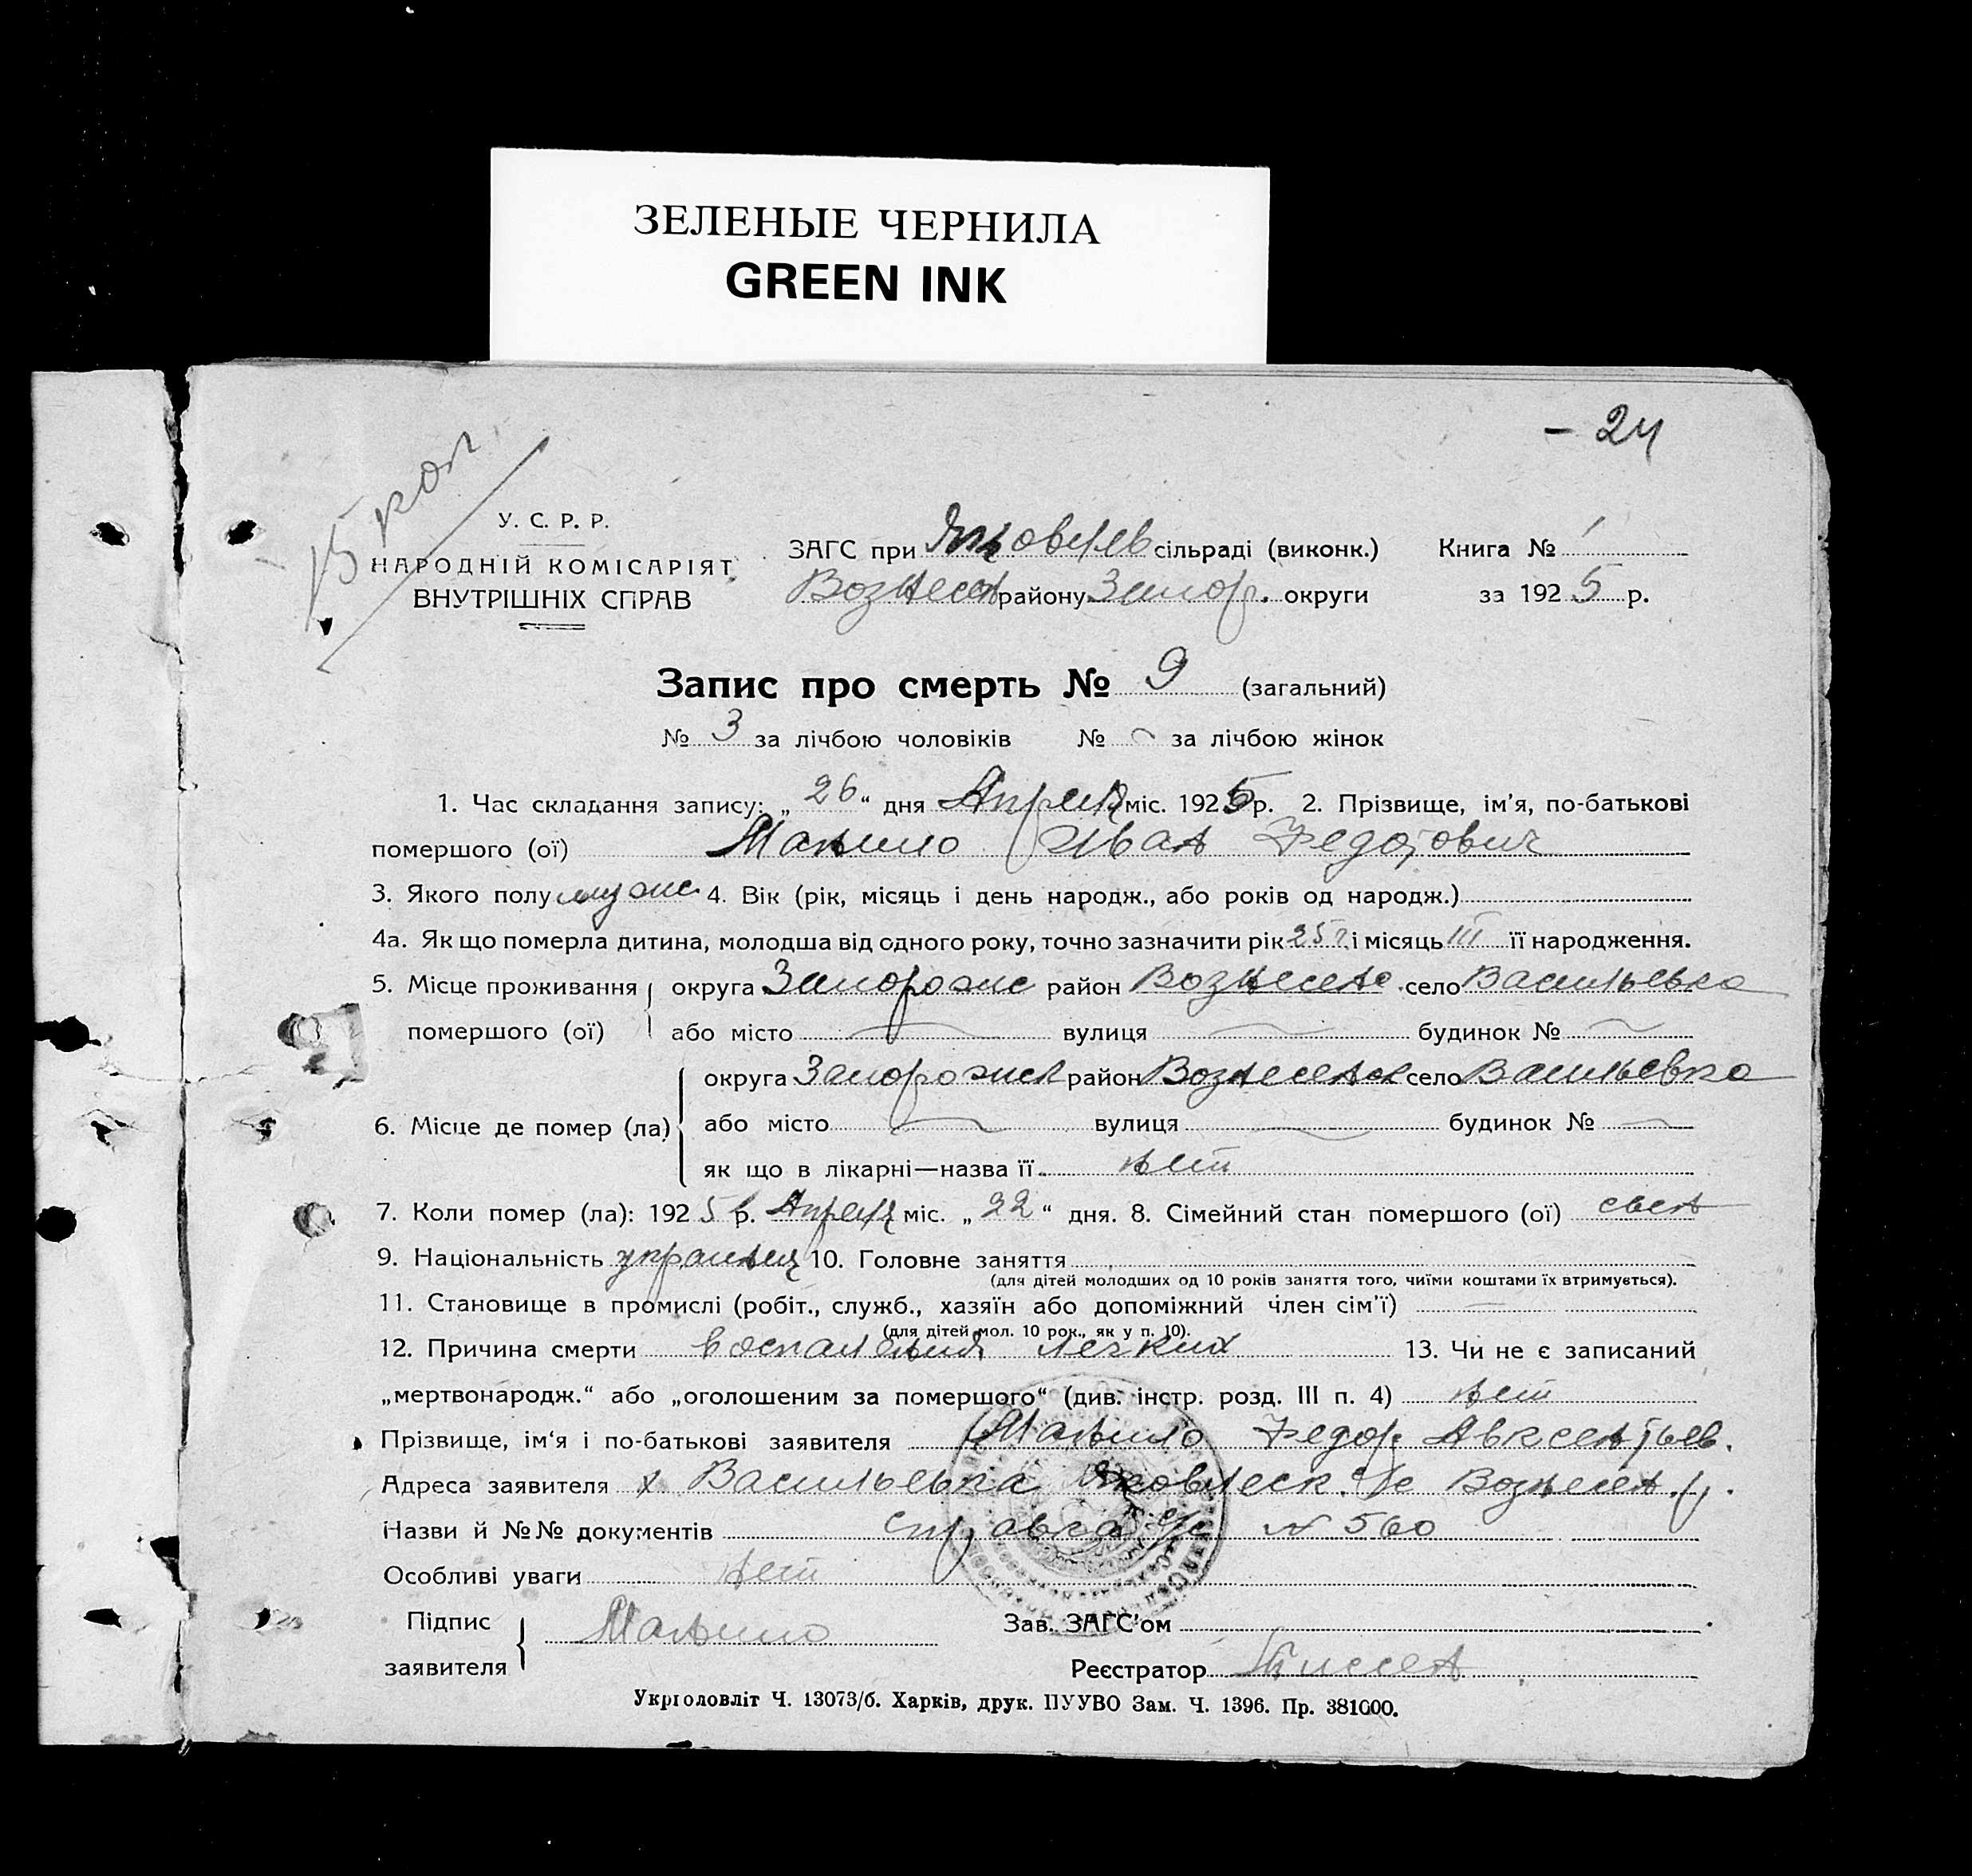 ЗЕЛЕНЫЕ ЧЕРНИЛА
GREEN INK
- 24
15 коп
У. С. Р. Р.
НАРОДНІЙ КОМІСАРІЯТ
ВНУТРІШНІХ СПРАВ
ЗАГС при Яковлев сільраді (виконк.) Книга № 1
Вознесен району Запор. округи за 1925 р.
Запис про смерть № 9 (загальний)
№ 3 за лічбою чоловіків № за лічбою жінок
1. Час складання запису: „26“ дня Апреля міс. 1925 р. 2. Прізвище, ім’я, по-батькові
помершого (ої) Иван Федорович
3. Якого полу муж 4. Вік (рік, місяць і день народж., або років од народж.)
4а. Як що померла дитина, молодша від одного року, точно зазначити рік 25 г. і місяць III її народження.
5. Місце проживання округа Запорож район Вознесен село Васильевка
помершого (ої) або місто вулиця будинок №
округа Запорожск район Вознесенск село Васильевка
6. Місце де помер (ла) або місто вулиця будинок №
як що в лікарні—назва її нет
7. Коли помер (ла): 1925 р. Апреля міс. „22“ дня. 8. Сімейний стан помершого (ої)
9. Національність украинец 10. Головне заняття
(для дітей молодших од 10 років заняття того, чиїми коштами їх втримується).
11. Становище в промислі (робіт., служб., хазяїн або допоміжний член сім’ї)
(для дітей мол. 10 рок., як у п. 10).
12. Причина смерти воспаления легких 13. Чи не є записаний
„мертвонародж.“ або „оголошеним за помершого“ (див. інстр. розд. III п. 4) нет
Прізвище, ім‘я і по-батькові заявителя Федор Авксентьев.
Адреса заявителя х Васильевка Яковлеск. с/с Вознесен. р.
Назви й №№ документів справка с/с № 560
Особливі уваги нет
Підпис
заявителя
Зав. ЗАГС’ом
Реєстратор
Укрголовліт Ч. 13073/б. Харків, друк. ПУУВО Зам. Ч. 1396. Пр. 381000.